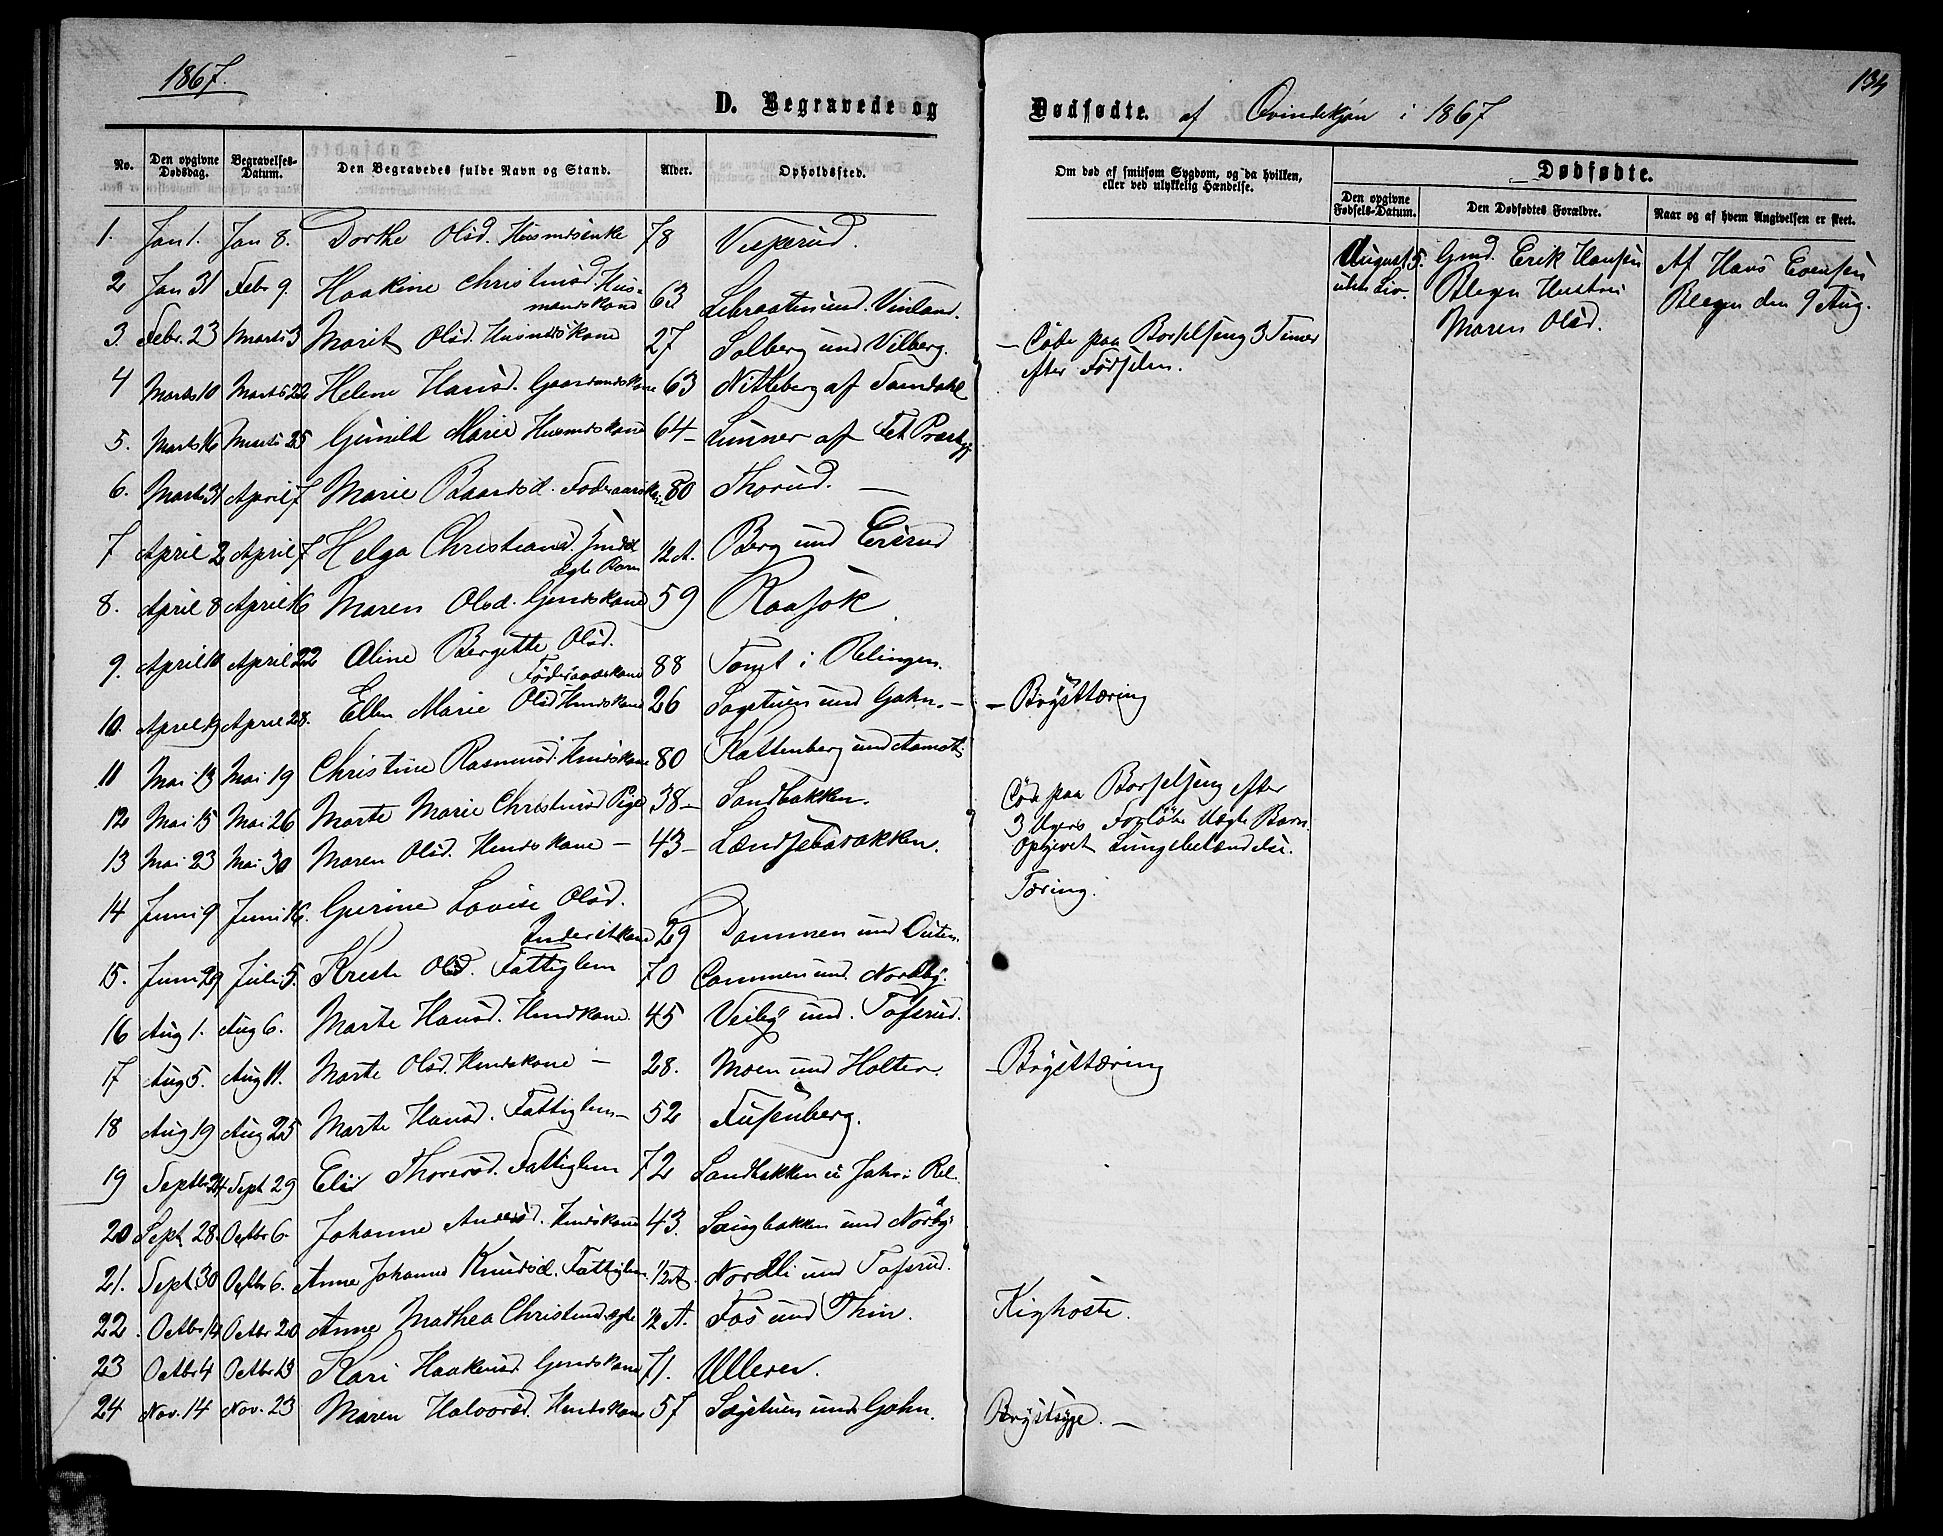 1867.
D. Begravede og
No. Den opgivne Dødsdag. Begravelses-Datum. Den Begravedes fulde Navn og Stand. Alder. Opholdssted.
1. Jan 1. Jan 8. Dorthe Olsd. Husmdsenke 78 Vesperud.
2 Jan 31 Febr 9. Haakine Christensd. Hus-
mandskone 63 und. Vinland.
3. Febr. 23 Marts 3 Marit Olsd. Husmdskone 27 Solberg und Vilberg.
4 Marts 10 Marts 22 Helene Hansd. Gaarmandskone 63 Nitteberg af
5. Marts 16 Marts 25 Gunild Marie Husmdskone 64 – Lunner af Fet Præstgj
6. Marts 31 April 7 Marie Baardsd. Føderaadskone 80 Thorud. –
7 April 2 April 7 Helga Christiansd. Inderst
ægte Barn 1/2 A. Berg und
8. April 8 April 16 Maren Olsd. Gmdskone 59 Raasok
9. April 10 April 22 Oline Bergitte Olsd.
Føderaadskone 88 Tomt i Relingen.
10. April 19 April 28. Ellen Marie Olsd Hmdskone 26 Sagstuen und Gahn. –
11 Mai 13 Mai 19 Christine Rasmusd. Hmdskone 80 Kattenberg und Aamodt
12 Mai 15 Mai 26 Marte Marie Christensd Pige 38 – Sandbakken.
13 Mai 23 Mai 30 Maren Olsd. Hmdskone – 43 –
14 Juni 9 Juni 16. Gurine Lovise Olsd.
Inderstkone 29 Dammen und
15. Juni 29 Juli 5. Kirste Olsd. Fattiglem 70 und. Nordby.
16 Aug 1. Aug 6. Marte Hansd. Hmdkone. 45 Veiby und. Tofsrud.
17 Aug 5. Aug 11. Marte Olsd. Hmdskone – 28. Moen und Holter.
18 Aug 19 Aug 25 Marte Hansd. Fattiglem – 52 Fusenberg.
19 Septbr 24 Sept 29 Elis Thorersd. Fattiglem 72 Sandbakken u Jahr i Rel.
20 Sept 28. Octbr 6. Johanne Andersd. Hmdskone 43. und Norby
21. Sept. 30 Octbr 6. Anne Johanne Knudsd. Fattiglem 1/2 A. Nordli und Tofsrud.
22. Octbr 14 Octbr 20 Anne Mathea Christensd. ægte 1/2 A. Fos und Thin.
23 Octbr 4 Octbr 13 Kari Haakensd Gmdskone 71. Ulleren.
24 Nov. 14 Nov. 23 Maren Halvorsd. Hmdskone 57 Sagstuen und Gahn.
134
Dødfødte. af Qvindekjøn i 1867
Om død af smitsom Sygdom, og da hvilken, eller ved ulykkelig Hændelse.
Dødfødte.
Den opgivne Fødsels-Datum. Den Dødfødtes Forældre. Naar og af hvem Angivelsen er skeet.
August 5. Gmd. Erik Hansen Af Hans Evensen
uden Liv. Blegen Hustru Blegen den 9 Aug.
Maren Olsd.
– Døde paa Barselseng 3 Timer
efter Fødselen.
– Brysttæring
Død paa Barselseng efter
3 Ugers Forløb. Uægte Barn
Opgivet Lungebetændelse.
Tæring.
– Brysttæring
Kighoste.
Brystsyge. –